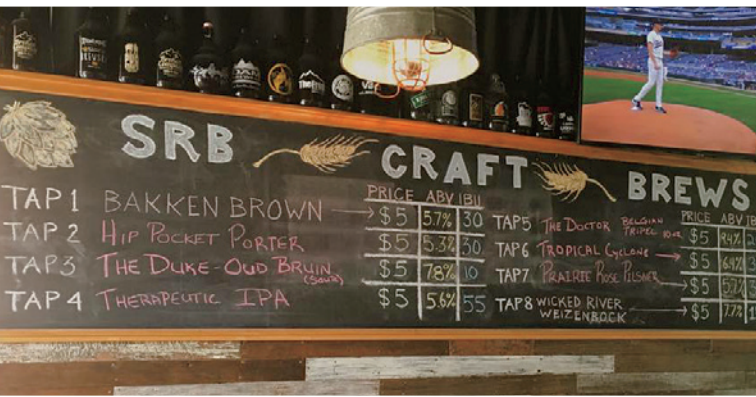 SRB CRAFT BREWS
PRICE ABV IBU
TAP 1 BAKKEN BROWN $5 5.7% 30
TAP 2 HIP POCKET PORTER $5 5.3% 30
TAP 3 THE DUKE-OUD BRUIN (SOUR) $5 7.8% 10
TAP 4 THERAPEUTIC IPA $5 5.6% 55
PRICE ABV
TAP5 THE DOCTOR BELGIAN TRIPEL $5 9.4%
TAP6 TROPICAL CYCLONE $5 6.9%
TAP7 PRAIRIE ROSE PILSNER $5
TAP8 WICKED RIVER WEIZENBOCK $5 7.7%